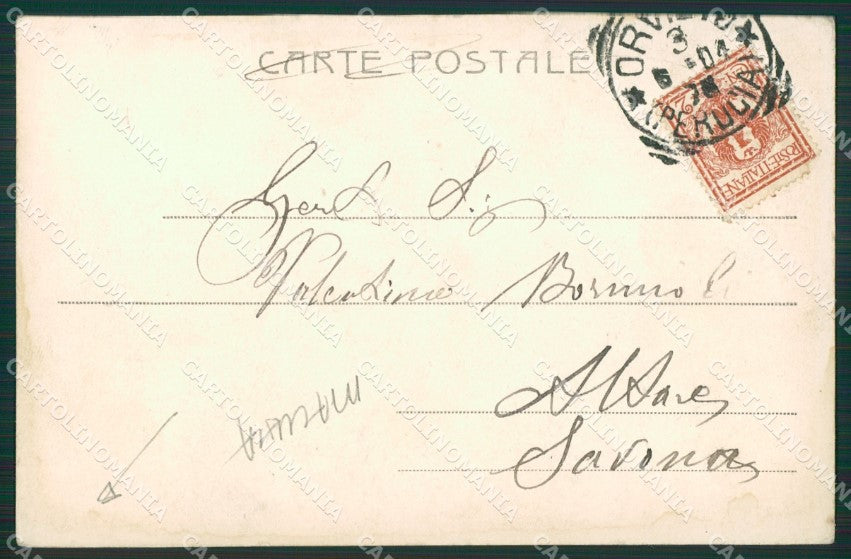 CARTE POSTALE
ORVIETO
(PERUGIA)
POSTE ITALIANE
2
Valentino Bormioli
Altare
Savona
CARTOLINOMANIA